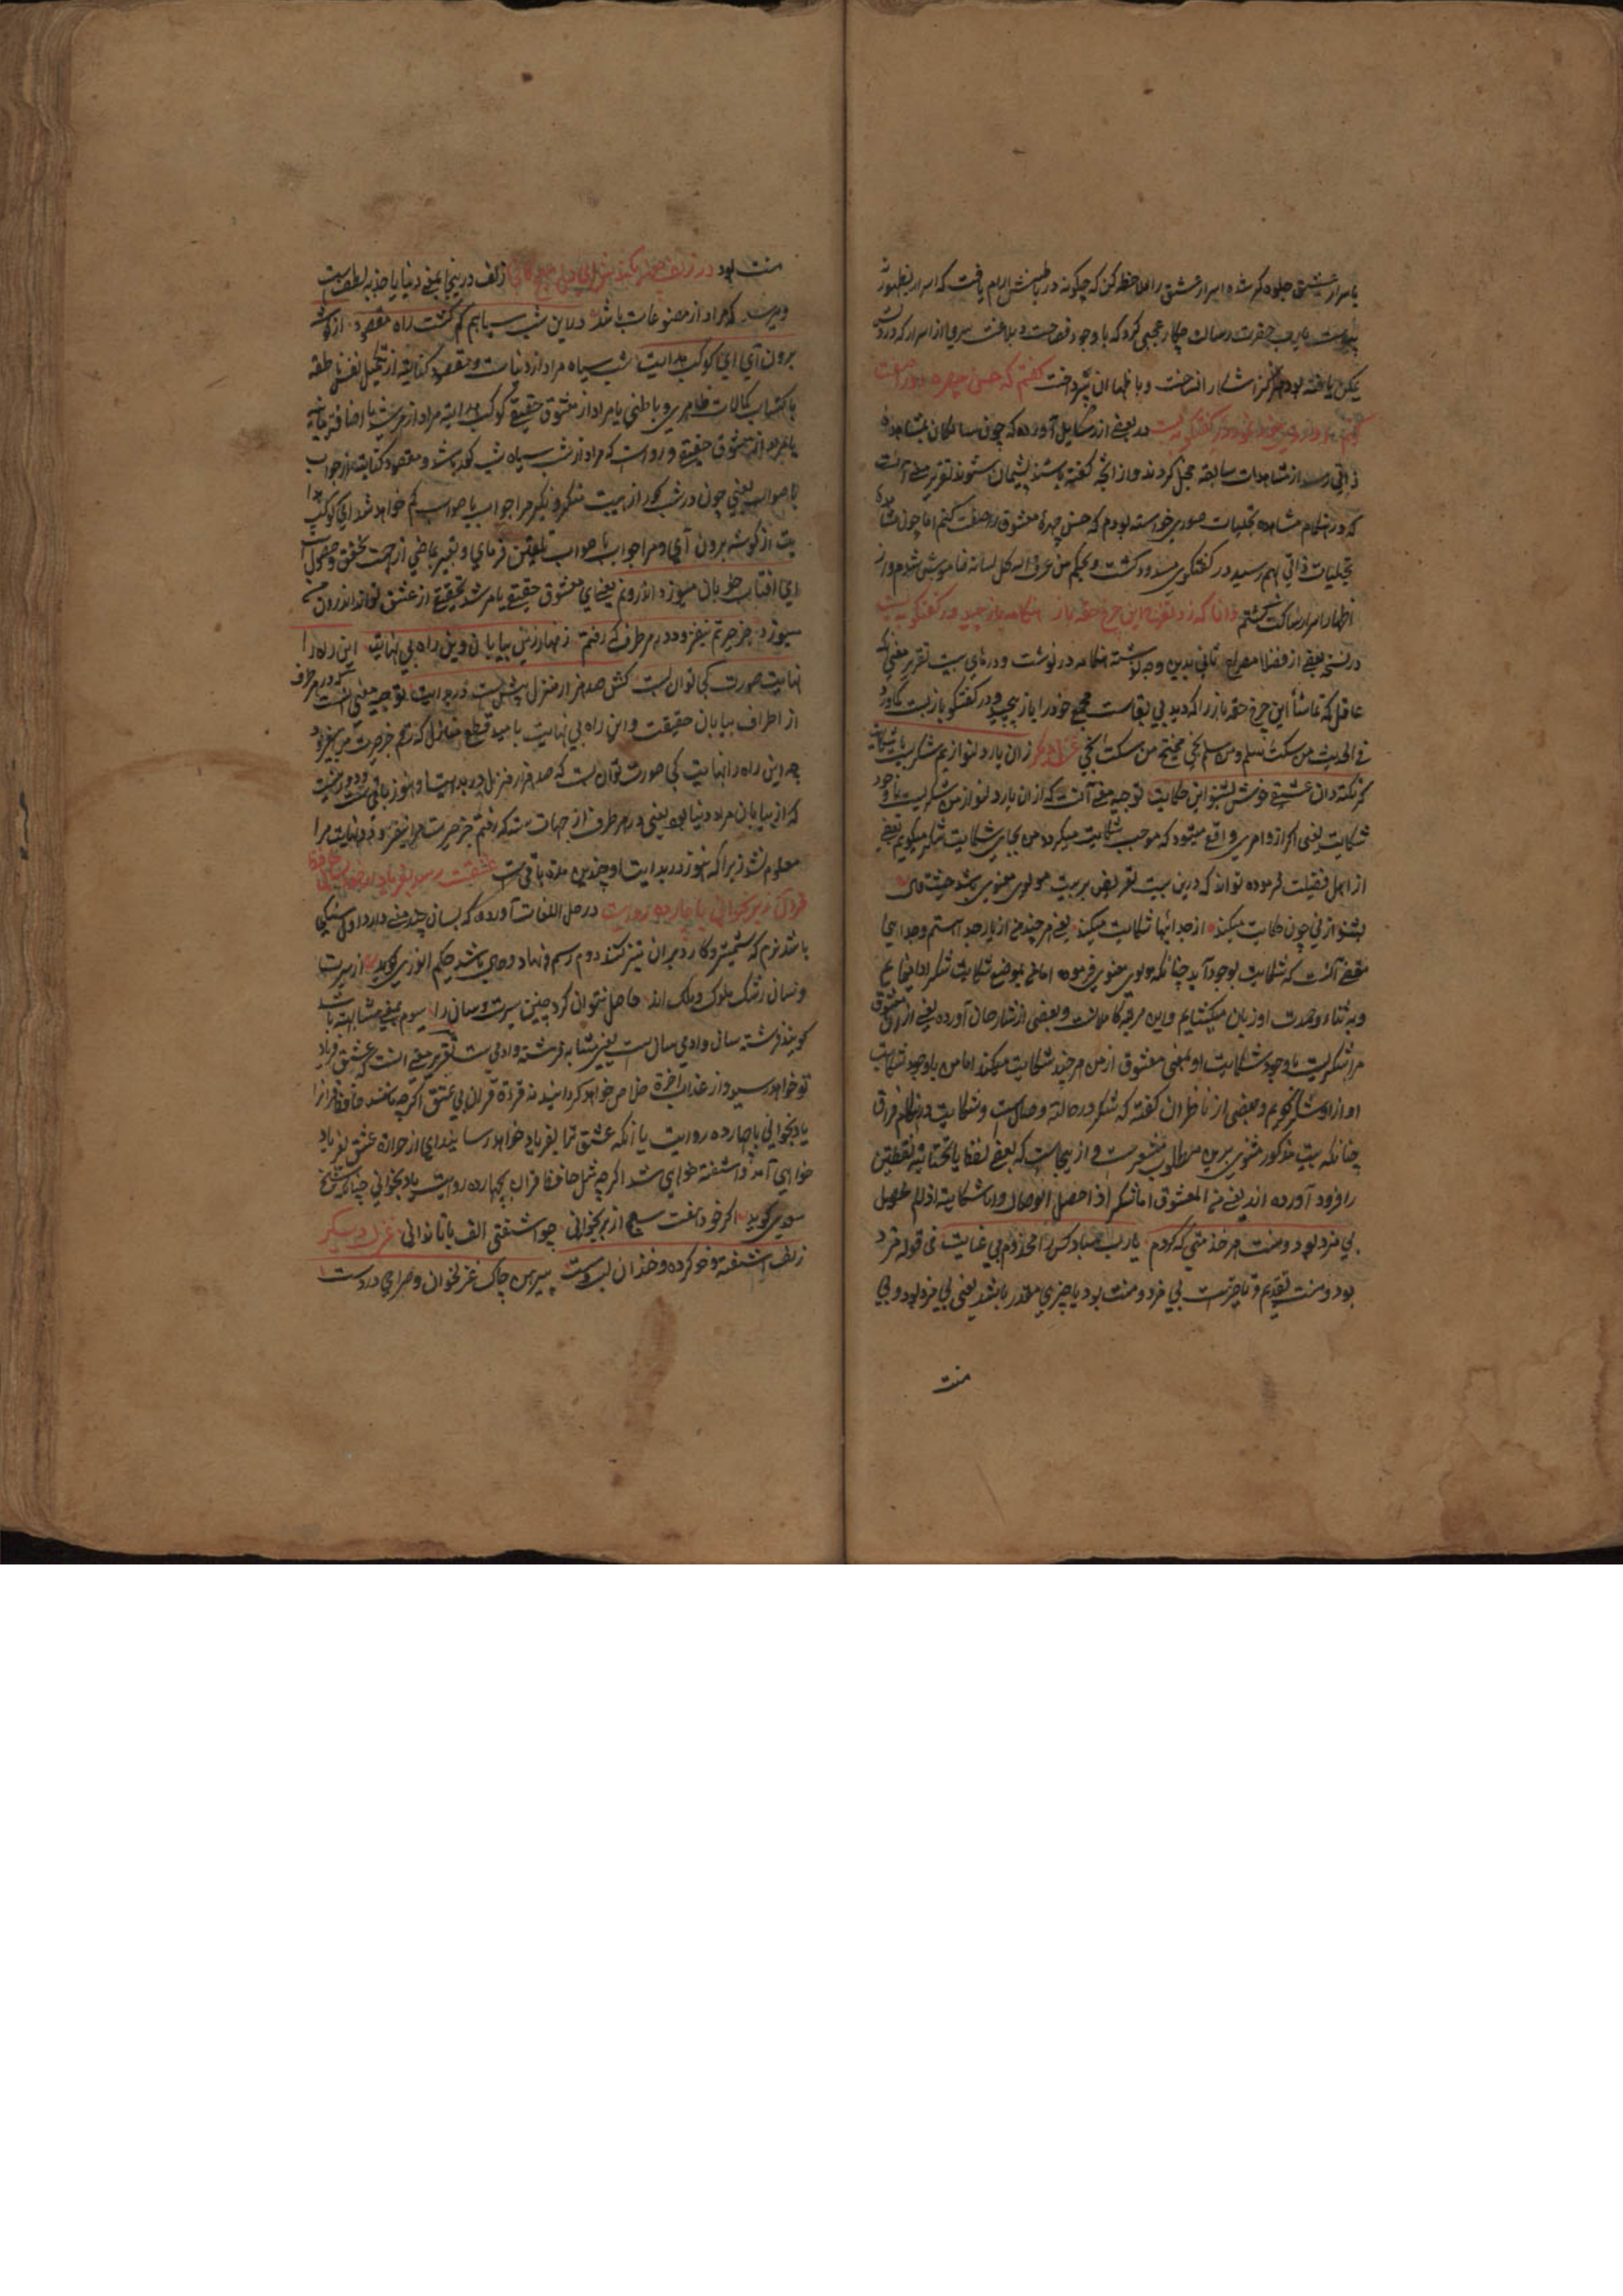 با سرار عشق جلوه گر شده اسرار عشق را ملاحظه کن که چگونه در طپش آرام یافت که اسرار بظهور
پیوست یارب حضرت رسالت چکار عجبی کرد که با وجود فصاحت و بلاغت سروی از اسرار که در
یافته بود هرگز آشکارا نساخت و باظهار آن نپرداخت گفتم که حسن چهره
در بعضی از رسایل آورده که چون سالکان بمشاهده
ذاتی رسند از مشاهدات سابقه خجل گردند و از آنچه گفته باشند پشیمان شوند تقریر معنی آنست
که در هنگام مشاهده تجلیات صوری خواسته بودم که حسن چهره معشوق را صفت کنم اما چون
تجلیات ذاتی بهم رسید در گفتگوی مسدود گشت و بحکم من عرف الله کل لسانه خاموش شدم و از
اظهار اسرار ساکت گشتم دانا که زد تفرج این چرخ حقه باز هنگامه باز چید و در گفتگو ببست
در نسخه بعضی از فضلا مصراع ثانی بدین وجه هنگامه در نوشت و در های ببست تقریر معنی آنکه
عاقل که تماشا این چرخ حقه باز را که دید بی بقاست مجمع خود را باز پیچید و در گفتگو باز ببست
فی الحدیث من سکت سلم و من سلم نجی من سکت نجی غزل دیگر زان یار دلنوازم شکریست با شکایت
گر نکته دان عشقی خوش بشنو این حکایت توجیه معنی آنست که از ان یار دلنواز من شکریست با وجود
شکایت یعنی اگر ازو امری واقع میشود که موجب شکایت میگردد من بجای شکایت شکر میگویم بعضی
از اهل فضیلت فرموده تواند که درین بیت تعریض بر بیت مولوی معنوی باشد حیث قال
بشنو از نی چون حکایت میکند از جدائیها شکایت میکند یعنی هر چند من از یار جدا هستم و جدایی
مقتضی آنست که شکایت بوجود آید چنانکه مولوی معنوی فرموده اما من بموضع شکایت شکر
و به ثناء وحدت او زبان میکشایم و این مرتبه کاملانست و بعضی از شارحان آورده یعنی از ان معشوق
مرا شکریست با وجود شکایت او بمعنی معشوق از من هر چند شکایت میکند اما من باوجود شکایت
او از او شکر گویم و بعضی از ناظران گفته که شکر در حالت وصالست و شکایت در هنگام فراق
چنانکه بیت مذکور مثنوی برین مطلوب مشعرست و از ینجاست که بعضی لفظ یا تحتانیه نقطتین
را فرود آورده اند یعنی من المعشوق اما شکر اذا حصل الوصال و اما شکایت اذا لم یحصل
بی مزد بود و منت هر خدمتی که کردم یارب مباد کس را مخدوم بی عنایت فی قوله مزد
بود و منت تقدیم و تاخیرست بی مزد و منت بود یا چیزی مقدر باشد یعنی بی مزد بود و بی
منت
منت بود در زلف چون کمندش ای دل مپیچ کانجا زلف درینجا بمعنی دنیا یا جذبه لطفست
که مراد از مصنوعات باشد در این شب سیاهم گم گشت راه مقصود از گوشه
برون آی ای کوکب هدایت شب سیاه مراد از دنیاست و مقصود کنایت از تکمیل نفس ناطقه
باکتساب کمالات ظاهری و باطنی یا مراد از معشوق حقیقی کوکب هدایت مراد از مرشد یا اضافت بیانیه
یا مراد از معشوق حقیقی و رواست که مراد از شب سیاه شب گور باشد و مقصود کنایت از جواب
با صواب یعنی چون در شب گور از هیبت منکر و نکیر مرا جواب با صواب گم خواهد شد ای کوکب هدا
یت از گوشه برون آی و مرا جواب با صواب تلقین فرمای و تعبیر بماضی از جهت تحقق و حصول است
ای آفتاب خوبان میسوزد اندرونم یعنی ای معشوق حقیقی یا مرشد تحقیقی از عشق تو اندرون من
میسوزد جز حیرتم نیفزود هر طرف که رفتم زنهار ازین بیابان وین راه بی نهایت این راه را
نهایت صورت کجا توان بست کش صد هزار منزل بیش است در بدایت توجیه معنی آنست که در هر طرف
از اطراف بیابان حقیقت و این راه بی نهایت بامید قطع منازل که رفتم جز حیرت من نیفزود
چه این راه را نهایت کجا صورت توان بست که صد هزار منزل در بدایت او هنوز باقیست
که از بیابان مراد دنیا بود یعنی در هر طرف از جهات سته که رفتم جز حیرت مرا نیفزود و نهایت مرا
معلوم نشد زیرا که هنوز در بدایت او چندین مدت باقیست عشقت رسد بفریاد ار خود بسان حافظ
قرآن زبر بخوانی با چارده روایت در حل اللغات آورده که بسان چند معنی دارد اول سنگی
باشد نرم که شمشیر و کارد بر آن تیز کنند دوم رسم و نهاد و باشد حکیم انوری گوید از سیرت
و سان رشک ملوک و ملک اند حاصل نتوان کرد چنین سیرت و سان را سیوم بمعنی مشابهت باشد
گویند فرشته سان و آدمی سان است یعنی مشابه فرشته و آدمی است تقریر معنی آنست که عشق فریاد
تو خواهد رسید و از عذاب آخرت خلاص خواهد گردانید نه قراءة قرآن بی عشق اگر چه مانند حافظ قرآن را
یاد بخوانی با چارده روایت یا آنکه عشق ترا بفریاد خواهد رسانید ای از حرارت عشق بفریاد
خواهی آمد و آشفته خواهی شد اگر چه مثل حافظ قرآن بچهارده روایت یاد بخوانی چنانکه شیخ
سعدی گوید اگر خود هفت سبع از بر بخوانی چو آشفتی الف با تا ندانی غزل دیگر
زلف آشفته و خوی کرده و خندان لب و مست پیرهن چاک غزلخوان و صراحی در دست